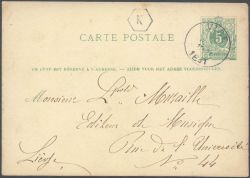 K
CARTE POSTALE
5
CE CÔTÉ EST RÉSERVÉ À L'ADRESSE. — ZIJDE VOOR HET ADRES VOORBEHOUDEN.
Monsieur Lpold Muraille
Editeur de Musique
Rue de l'Université
Liège No 44